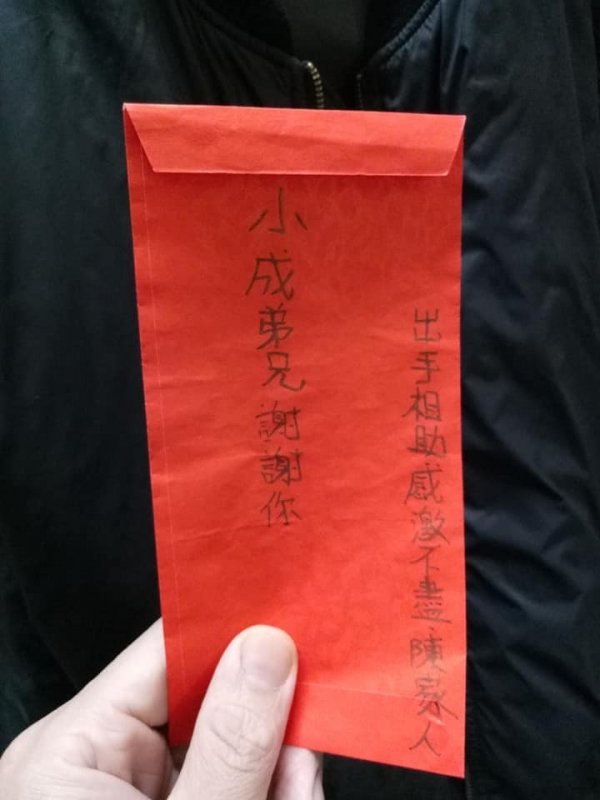 小成弟兄謝謝你
出手相助感激不盡.陳家人